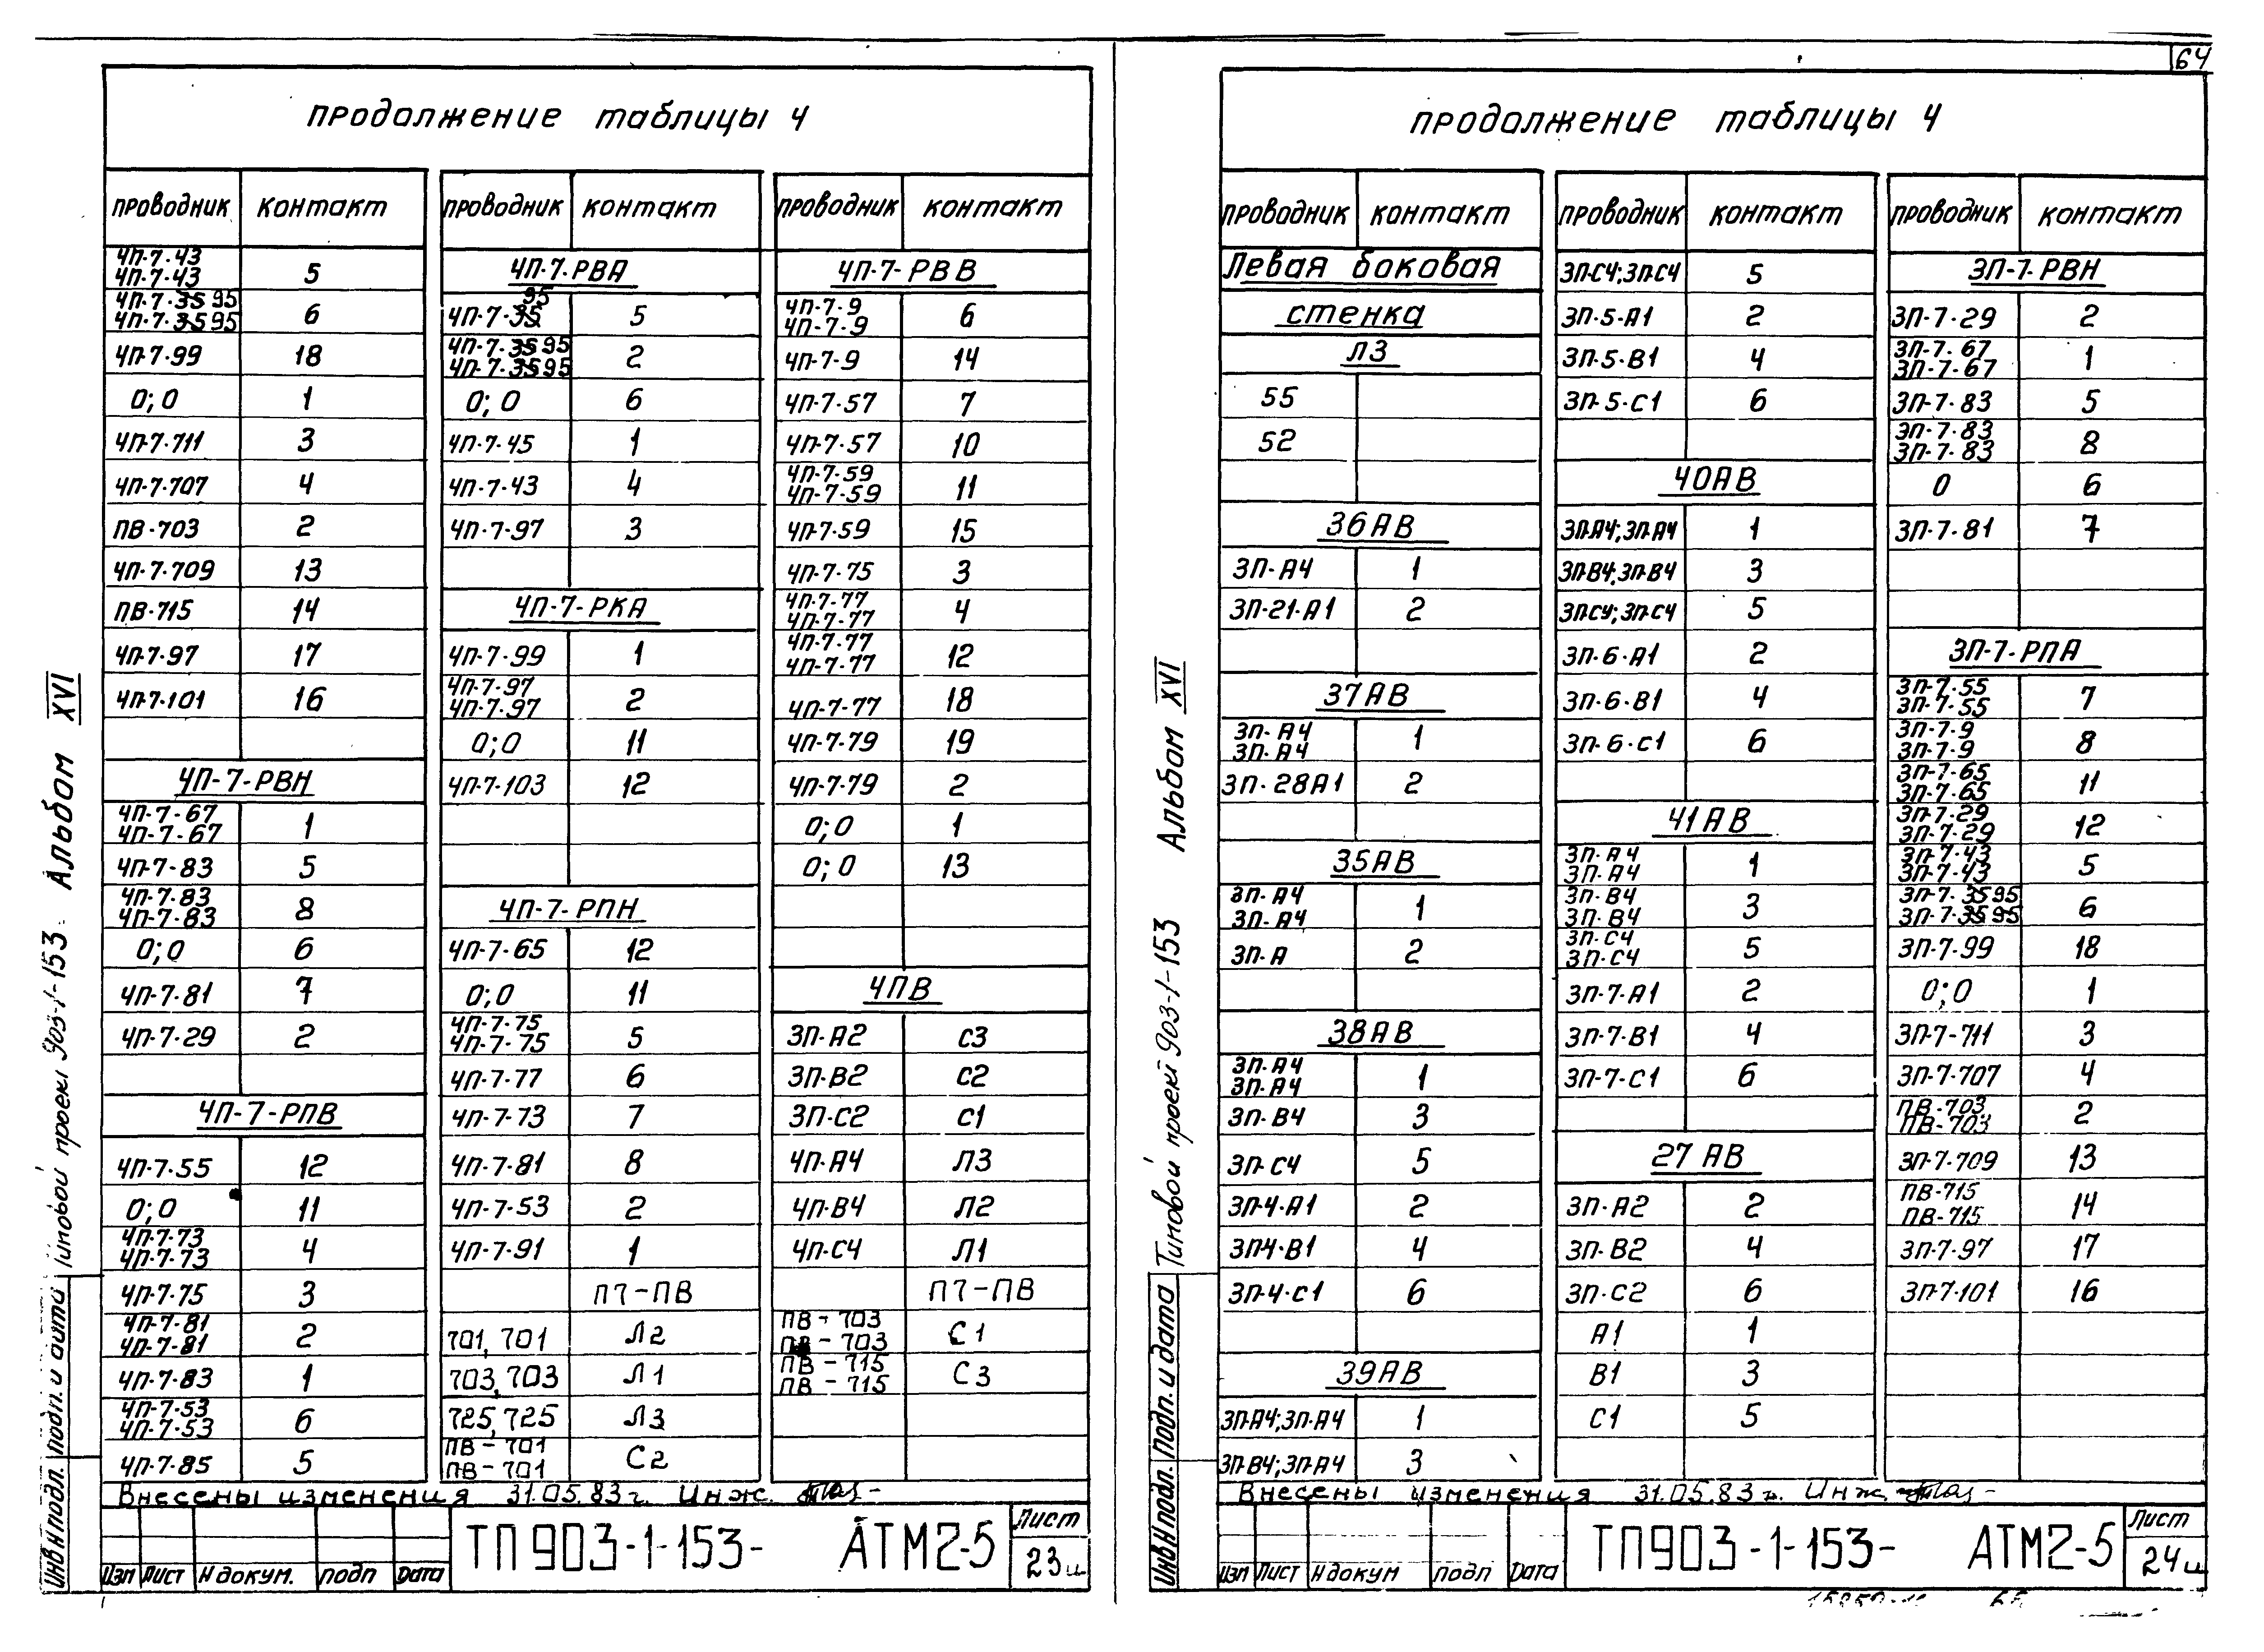 64
продолжение таблицы 4
проводник контакт
4П-7-43
4П-7-43 5
4П-7-35 95
4П-7-35 95 6
4П-7-99 18
0;0 1
4П-7-711 3
4П-7-707 4
ПВ-703 2
4П-7-709 13
ПВ-715 14
4П-7-97 17
4П-7-101 16
4П-7-РВН
4П-7-67
4П-7-67 1
4П-7-83 5
4П-7-83
4П-7-83 8
0;0 6
4П-7-81 7
4П-7-29 2
4П-7-РПВ
4П-7-55 12
0;0 11
4П-7-73
4П-7-73 4
4П-7-75 3
4П-7-81
4П-7-81 2
4П-7-83 1
4П-7-53
4П-7-53 6
4П-7-85 5
проводник контакт
4П-7-РВА
95
4П-7-35 5
4П-7-35 95
4П-7-35 95 2
0;0 6
4П-7-45 1
4П-7-43 4
4П-7-97 3
4П-7-РКА
4П-7-99 1
4П-7-97
4П-7-97 2
0;0 11
4П-7-103 12
4П-7-РПН
4П-7-65 12
0;0 11
4П-7-75
4П-7-75 5
4П-7-77 6
4П-7-73 7
4П-7-81 8
4П-7-53 2
4П-7-91 1
П7-ПВ
701, 701 Л2
703, 703 Л1
725, 725 Л3
ПВ-701
ПВ-701 С2
проводник контакт
4П-7-РВВ
4П-7-9
4П-7-9 6
4П-7-9 14
4П-7-57 7
4П-7-57 10
4П-7-59
4П-7-59 11
4П-7-59 15
4П-7-75 3
4П-7-77
4П-7-77 4
4П-7-77
4П-7-77 12
4П-7-77 18
4П-7-79 19
4П-7-79 2
0;0 1
0;0 13
4ПВ
3П-А2 С3
3П-В2 С2
3П-С2 С1
4П-А4 Л3
4П-В4 Л2
4П-С4 Л1
П7-ПВ
ПВ-703
ПВ-703 С1
ПВ-715
ПВ-715 С3
Внесены изменения 31.05.83г. Инж.
Изм Лист N докум. подп Дата
ТП 903-1-153- АТМ2-5
Лист
23и
Типовой проект 903-1-153 Альбом XVI
Инв N подп. подп. и дата
продолжение таблицы 4
проводник контакт
Левая боковая
стенка
Л3
55
52
36АВ
3П-А4 1
3П-21-А1 2
37АВ
3П-А4
3П-А4 1
3П-28А1 2
35АВ
3П-А4
3П-А4 1
3П-А 2
38АВ
3П-А4
3П-А4 1
3П-В4 3
3П-С4 5
3П-4-А1 2
3П4-В1 4
3П-4-С1 6
39АВ
3П-А4;3П-А4 1
3П-В4;3П-А4 3
проводник контакт
3П-С4;3П-С4 5
3П-5-А1 2
3П-5-В1 4
3П-5-С1 6
40АВ
3П-А4;3П-А4 1
3П-В4;3П-В4 3
3П-С4;3П-С4 5
3П-6-А1 2
3П-6-В1 4
3П-6-С1 6
41АВ
3П-А4
3П-А4 1
3П-В4
3П-В4 3
3П-С4
3П-С4 5
3П-7-А1 2
3П-7-В1 4
3П-7-С1 6
27АВ
3П-А2 2
3П-В2 4
3П-С2 6
А1 1
В1 3
С1 5
проводник контакт
3П-7-РВН
3П-7-29 2
3П-7-67
3П-7-67 1
3П-7-83 5
3П-7-83
3П-7-83 8
0 6
3П-7-81 7
3П-7-РПА
3П-7-55
3П-7-55 7
3П-7-9
3П-7-9 8
3П-7-65
3П-7-65 11
3П-7-29
3П-7-29 12
3П-7-43
3П-7-43 5
3П-7-35 95
3П-7-35 95 6
3П-7-99 18
0;0 1
3П-7-711 3
3П-7-707 4
ПВ-703
ПВ-703 2
3П-7-709 13
ПВ-715
ПВ-715 14
3П-7-97 17
3П-7-101 16
Внесены изменения 31.05.83г. Инж.
Изм Лист N докум подп Дата
ТП 903-1-153- АТМ2-5
Лист
24и
Типовой проект 903-1-153 Альбом XVI
Инв N подп. подп. и дата